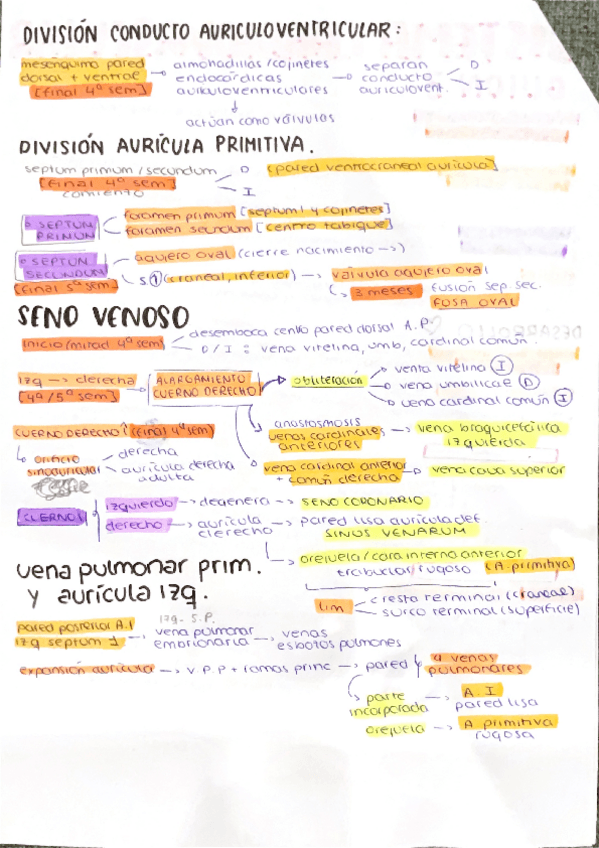 DIVISIÓN CONDUCTO AURICULOVENTRICULAR:
mesenquima pared → almohadillas/cojinetes → separan D
dorsal + ventral endocárdicas conducto
[final 4ª sem] auriculoventriculares auriculovent. I
actúan como válvulas
DIVISIÓN AURÍCULA PRIMITIVA.
septum primum/secundum D [pared ventrocraneal aurícula]
[final 4ª sem] I
comienzo
SEPTUM PRIMUM foramen primum [septum 1 y cojinetes]
foramen secundum [centro tabique]
SEPTUM SECUNDUM agujero oval (cierre nacimiento →)
[final 5ª sem] S.① (craneal, inferior) → válvula agujero oval
↳ 3 meses fusión sep. sec.
FOSA OVAL
SENO VENOSO
inicio/mitad 4ª sem desemboca centro pared dorsal A.P.
D/I: vena vitelina, umb, cardinal común.
izq → derecha → ALARGAMIENTO → obliteración → venta vitelina Ⓘ
[4ª/5ª sem] CUERNO DERECHO → vena umbilical Ⓓ
→ vena cardinal común Ⓘ
CUERNO DERECHO↑ [final 4ª sem] anostosmosis
venas cardinales → vena braquicefálica
anteriores izquierda
↳ orificio → derecha
sinoauricular → aurícula derecha adulta
vena cardinal anterior → vena cava superior
+ común derecha
CUERNO izquierdo → degenera → SENO CORONARIO
derecho → aurícula → pared lisa aurícula def.
derecha SINUS VENARUM
↳ orejuela/cara interna anterior
trabuclas rugoso (A. primitiva)
lim cresta terminal (craneal)
surco terminal (superficie)
vena pulmonar prim.
y aurícula izq.
izq. S.P.
pared posterior A.I → vena pulmonar → venas
izq septum 1 embrionaria esbotos pulmones
expansión aurícula → V.P.P + ramas princ → pared y 4 venas
pulmonares
parte → A. I
incorporada pared lisa
orejuela → A primitiva
rugosa